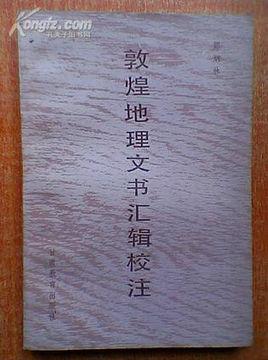 Kongfz.com
孔夫子旧书网
郑炳林
敦煌地理文书汇辑校注
甘肃教育出版社